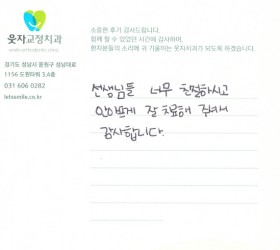 웃자교정치과
smile orthodontic clinic
경기도 성남시 분당구 성남대로
1156 도원타워 3,4층
031 606 0282
letssmile.co.kr
소중한 후기 감사드립니다.
함께 할 수 있었던 시간에 감사하며,
환자분들의 소리에 귀 기울이는 웃자치과가 되도록 하겠습니다.
선생님들 너무 친절하시고
안아프게 잘 치료해 주셔서
감사합니다.